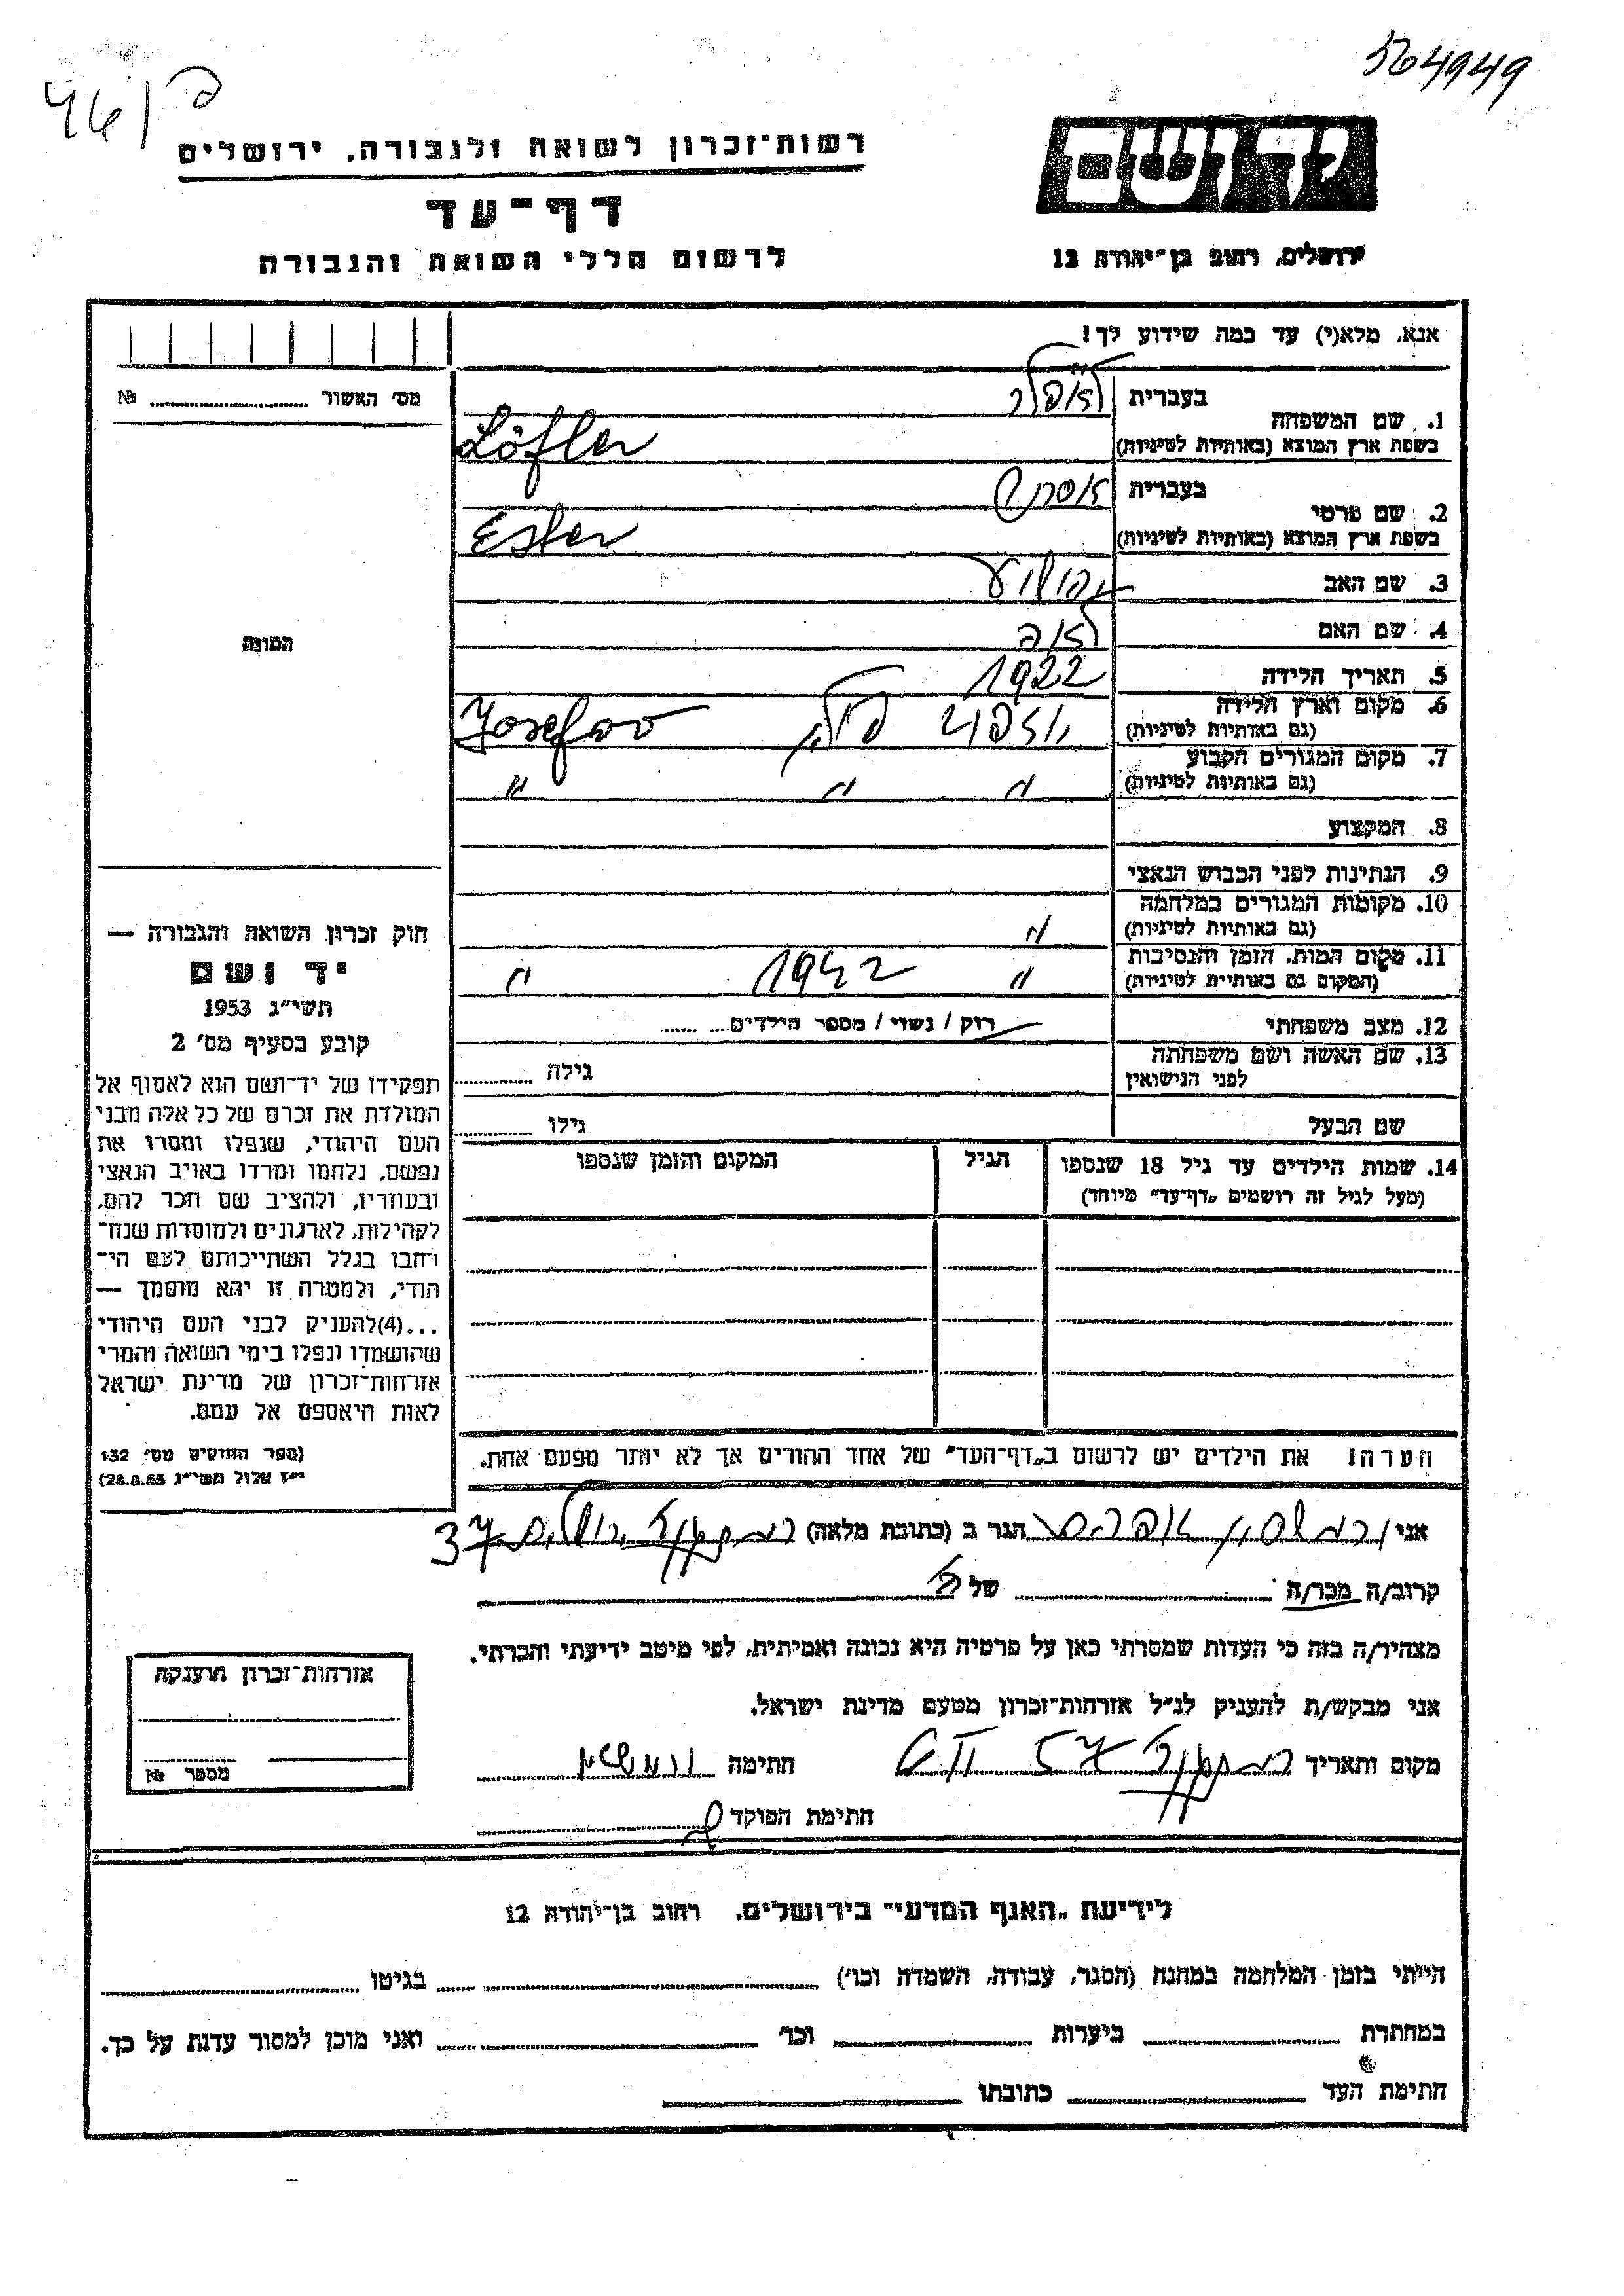 564949
461 פ
יד ושם
רשות־זכרון לשואה ולגבורה, ירושלים
דף־עד
לרשום חללי השואה והגבורה
ירושלים, רחוב בן־יהודה 12
אנא, מלא(י) עד כמה שידוע לך!
מס׳ האשור № 
1. שם המשפחה
בעברית לאפלר
בשפת ארץ המוצא (באותיות לטיניות) Löfler
2. שם פרטי
בעברית אסתר
בשפת ארץ המוצא (באותיות לטיניות) Ester
3. שם האב יהושע
4. שם האם לאה
5. תאריך הלידה 1922
6. מקום וארץ הלידה
(גם באותיות לטיניות) יוזפוב פולין Josefow
7. מקום המגורים הקבוע
(גם באותיות לטיניות) " " "
8. המקצוע
9. הנתינות לפני הכבוש הנאצי
10. מקומות המגורים במלחמה
(גם באותיות לטיניות) "
11. מקום המות, הזמן והנסיבות
(המקום גם באותיות לטיניות) " 1942 "
12. מצב משפחתי רוק / נשוי / מספר הילדים
13. שם האשה ושם משפחתה
לפני הנישואין גילה
שם הבעל גילו
14. שמות הילדים עד גיל 18 שנספו
(מעל לגיל זה רושמים „דף־עד" מיוחד)
הגיל
המקום והזמן שנספו
הערה! את הילדים יש לרשום ב„דף־העד" של אחד ההורים אך לא יותר מפעם אחת.
התמונה
חוק זכרון השואה והגבורה —
יד ושם
תשי״ג 1953
קובע בסעיף מס׳ 2
תפקידו של יד־ושם הוא לאסוף אל
המולדת את זכרם של כל אלה מבני
העם היהודי, שנפלו ומסרו את
נפשם, נלחמו ומרדו באויב הנאצי
ובעוזריו, ולהציב שם וזכר להם,
לקהילות, לארגונים ולמוסדות שנח־
רחבו בגלל השתייכותם לעם הי־
הודי, ולמטרה זו יהא מוסמך —
...(4)להעניק לבני העם היהודי
שהושמדו ונפלו בימי השואה והמרי
אזרחות־זכרון של מדינת ישראל
לאות היאספם אל עמם.
(ספר החוקים מס׳ 132
י״ז אלול תשי״ג 28.8.53)
אני אברהם הגר ב (כתובת מלאה) 37
קרוב/ה מכר/ה של
מצהיר/ה בזה כי העדות שמסרתי כאן על פרטיה היא נכונה ואמיתית, לפי מיטב ידיעתי והכרתי.
אני מבקש/ת להעניק לנ״ל אזרחות־זכרון מטעם מדינת ישראל.
מקום ותאריך חתימה
חתימת הפוקד
אזרחות־זכרון הוענקה
מספר №
לידיעת „האגף המדעי" בירושלים, רחוב בן־יהודה 12
הייתי בזמן המלחמה במחנה (הסגר, עבודה, השמדה וכו׳) בגיטו
במחתרת ביערות וכו׳ ואני מוכן למסור עדות על כך.
חתימת העד כתובתו